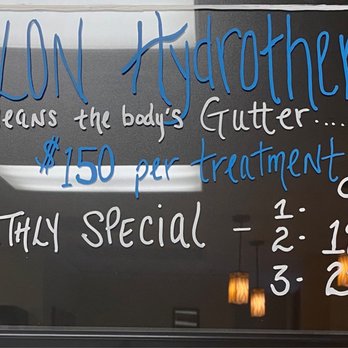 LON Hydrother
eans the body's Gutter....
$150 per treatment
THLY SPECIAL - 1-
2- 1
3- 2